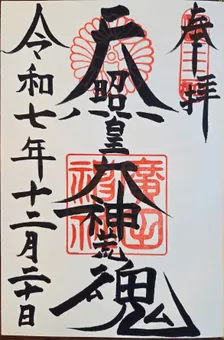 奉拝
天照皇大神荒魂
廣田神社
令和七年十二月二十日